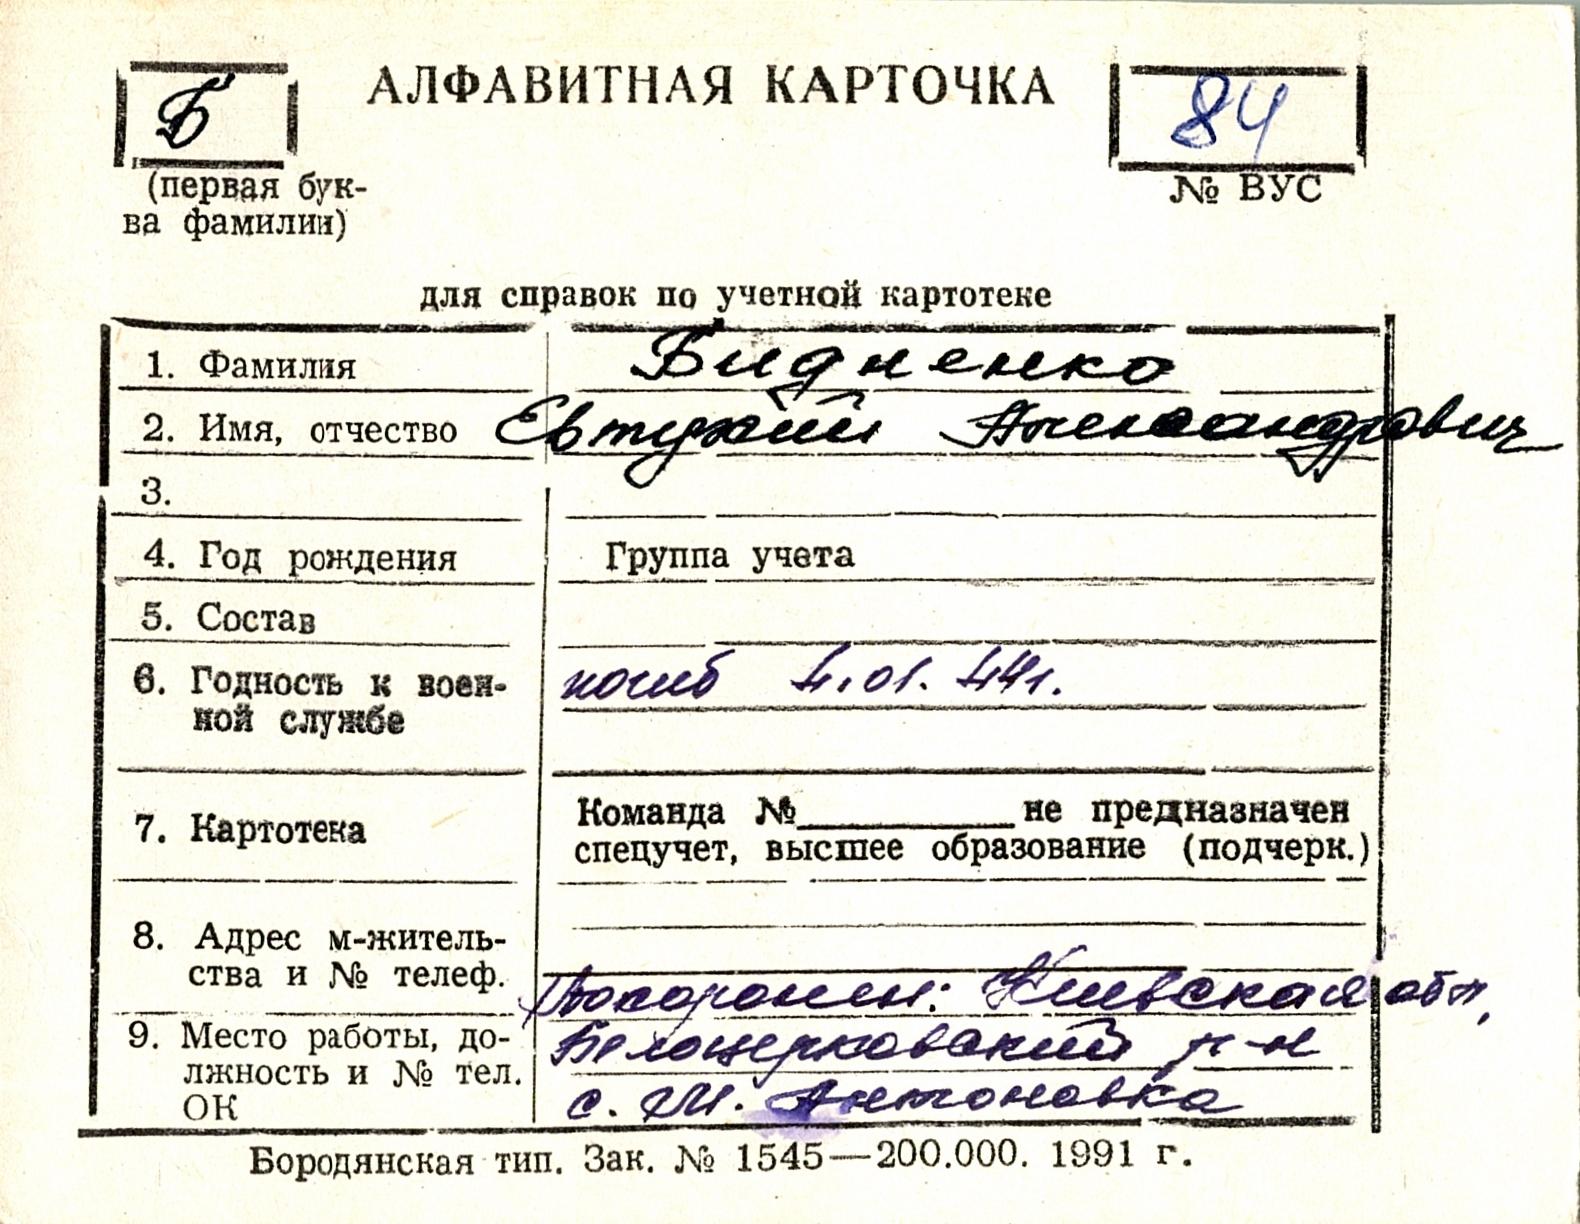 Б
АЛФАВИТНАЯ КАРТОЧКА
84
(первая бук-
ва фамилии)
№ ВУС
для справок по учетной картотеке
1. Фамилия Бидненко
2. Имя, отчество Евтухий Александрович
3.
4. Год рождения Группа учета
5. Состав
6. Годность к воен-
ной службе
погиб 4.01.44г.
7. Картотека
Команда №__________не предназначен
спецучет, высшее образование (подчерк.)
8. Адрес м-житель-
ства и № телеф.
Похоронен: Киевская обл,
9. Место работы, до-
лжность и № тел.
ОК
Белоцерковский р-н
с. Антоновка
Бородянская тип. Зак. № 1545—200.000. 1991 г.